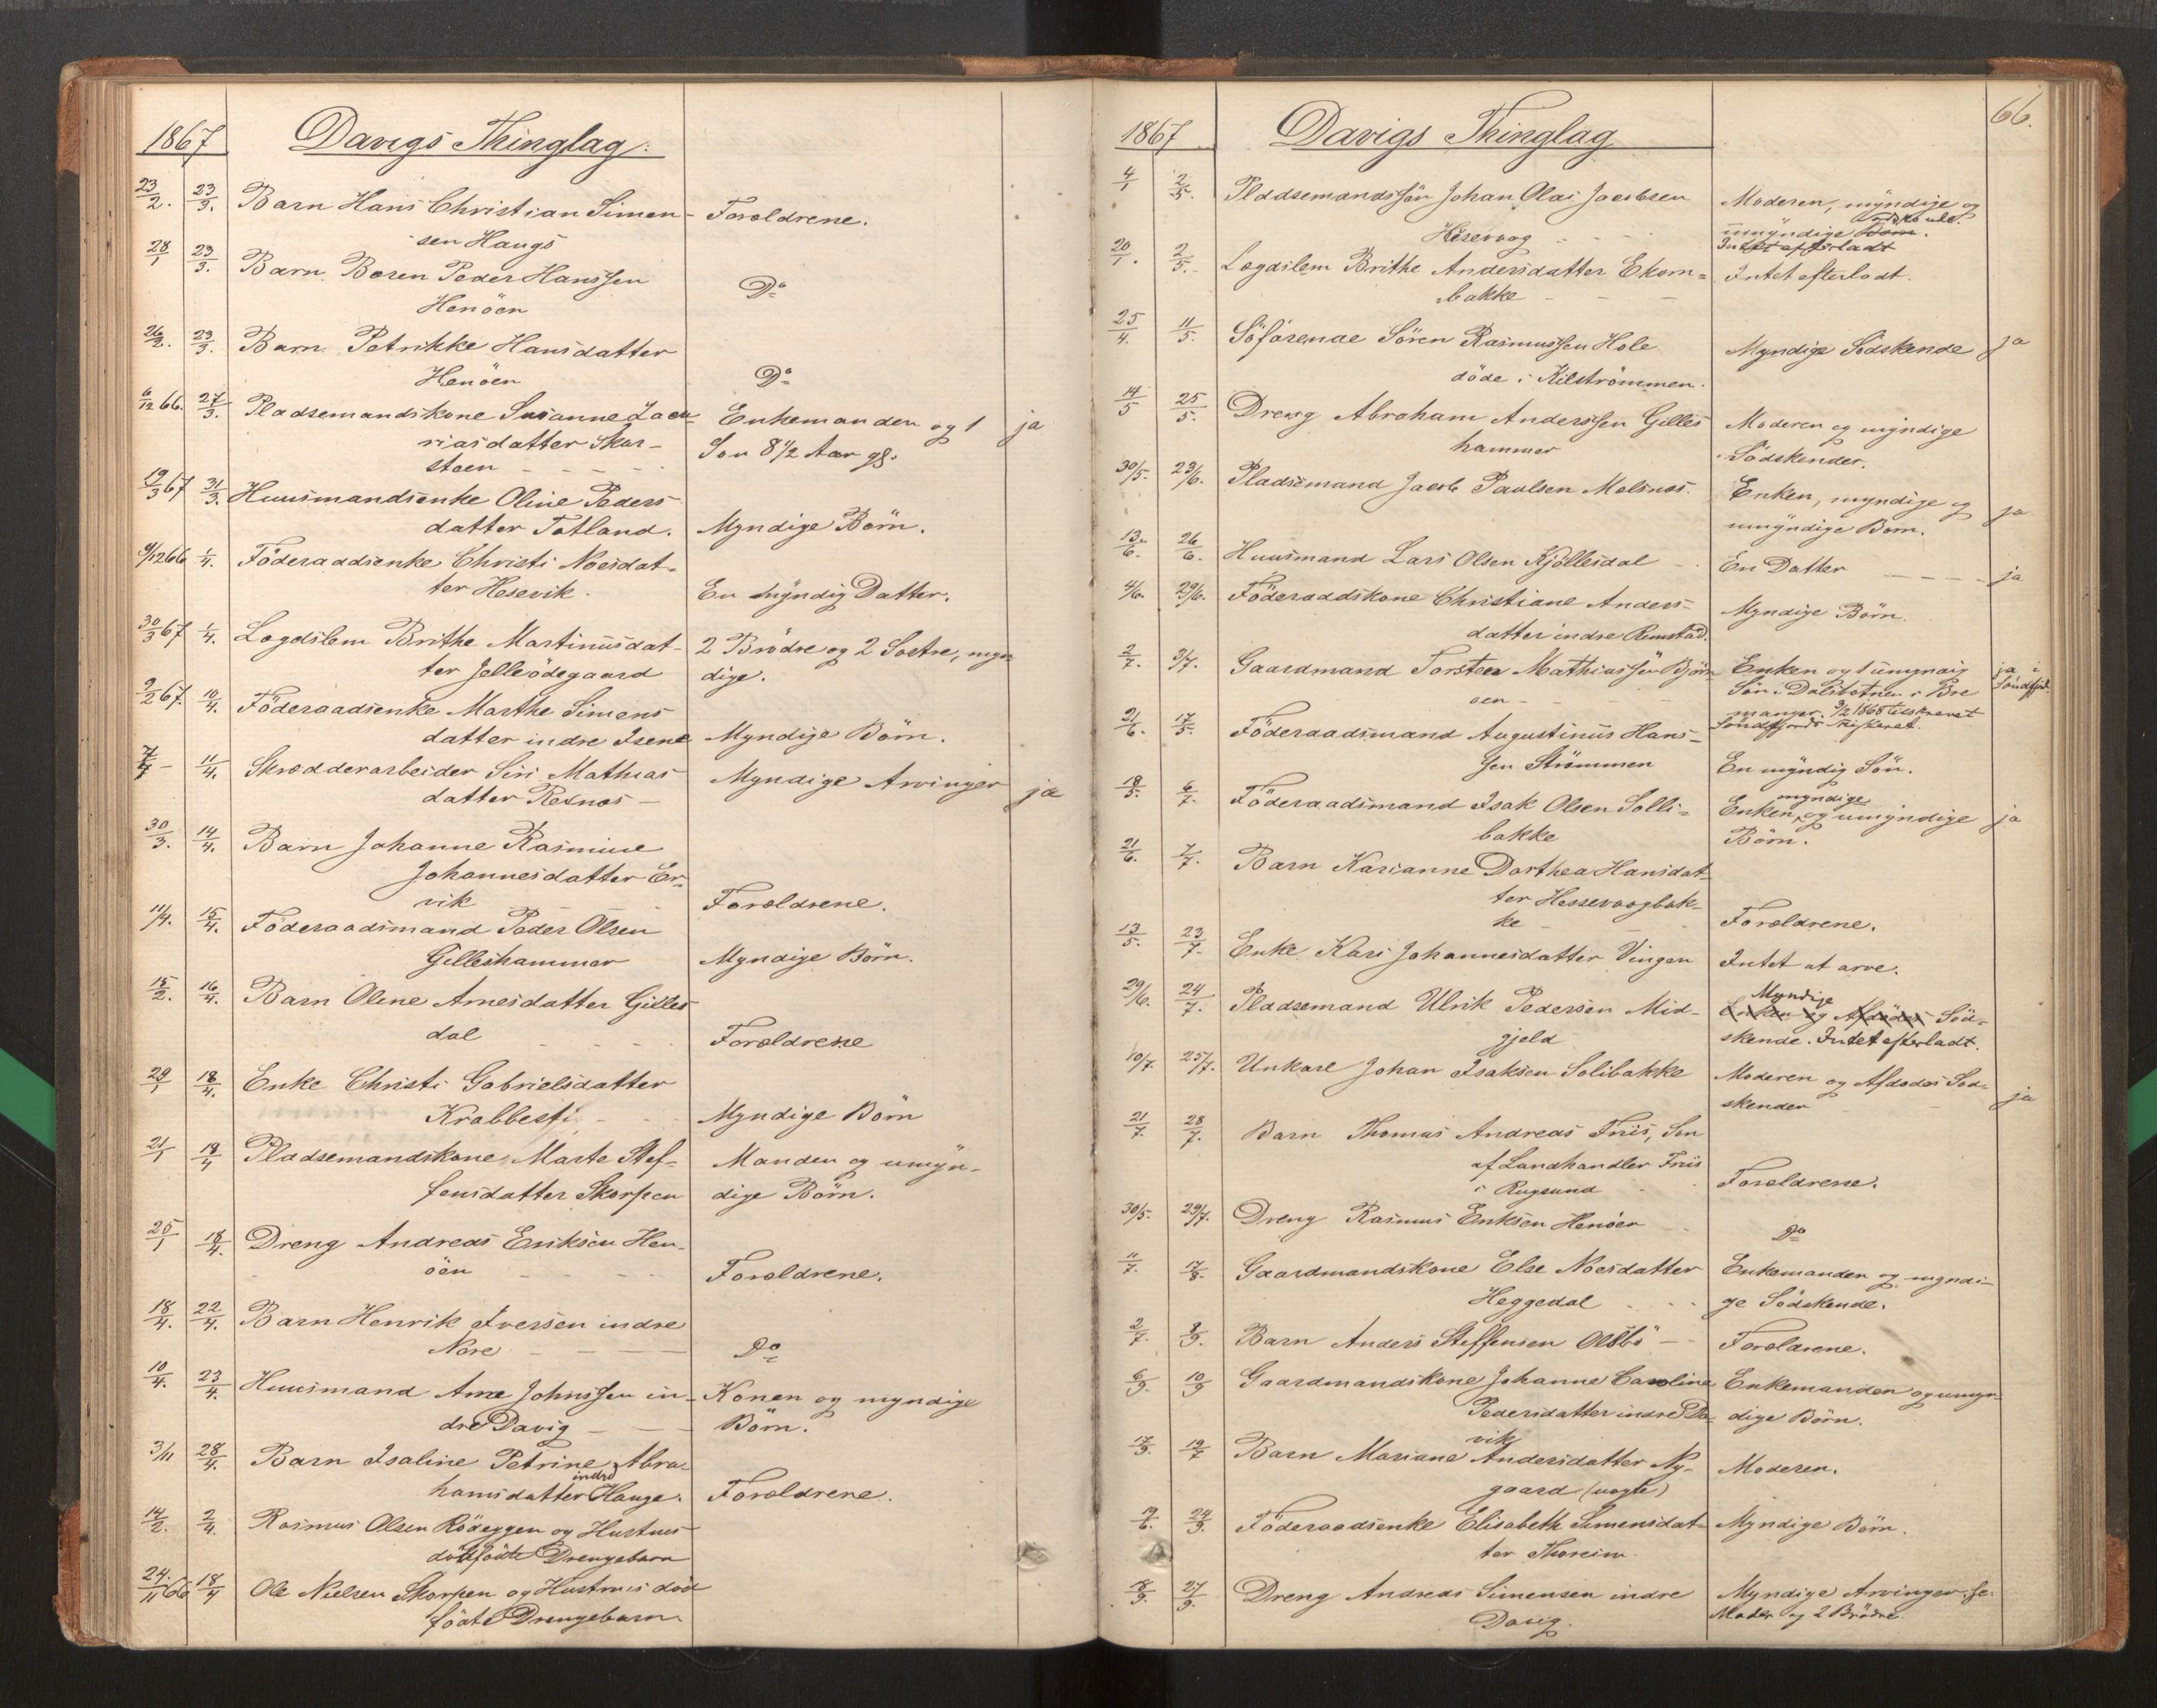 1867 Davigs Thinglag.
23/2. 23/3. Barn Hans Christian Simen- Forældrene.
sen Haugs
28/1 23/3. Barn Baren Peder Hanssen
Henöen Do
26/2. 23/3. Barn Petrikke Hansdatter
Henöen Do
6/12 66. 27/3. Pladsemandskone Susanne Zaca- Enkemanden og 1 ja
riasdatter Skor- Søn 8 1/2 Aar gl.
støen
19/3 67 31/3. Huusmandsenke Oline Peders
datter Totland. Myndige Börn.
9/12 66 1/4. Föderaadsenke Christi Noesdat-
ter Hesevik. En myndig Datter.
30/3 67 1/4. Lægdslem Brithe Martinusdat- 2 Brödre og 2 Søstre, myn-
ter Jelleödegaard dige.
9/2 67. 10/4. Föderaadsenke Marthe Simens
datter indre Isene Myndige Börn.
7/4 - 11/4. Skrædderarbeider Siri Mathias
datter Rexnæs Myndige Arvinger ja
30/3. 14/4. Barn Johanne Rasmine
Johannesdatter Er-
vik Forældrene.
11/4. 15/4. Föderaadsmand Peder Olsen
Gilleshammer Myndige Börn.
15/2. 16/4. Barn Oline Arnesdatter Gilles
dal Forældrene
29/1 18/4. Enke Christi Gabrielsdatter
Krabbestj Myndige Börn
21/1 18/4 Pladsemandskone Marte Stef- Manden og umyn-
fensdatter Skorpen dige Börn.
25/1 18/4. Dreng Andreas Eriksen Hen-
öen Forældrene.
18/4. 22/4. Barn Henrik Iversen indre
Nore Do
10/4. 23/4. Huusmand Arne Johnssen in- Konen og myndige
dre Davig Börn.
3/11 28/4. Barn Isaline Petrine Abra-
indre
hamsdatter Hauge. Forældrene.
14/2. 2/4. Rasmus Olsen Rödeggen og Hustrues
dödfödte Drengebarn
24/11 66 18/4 Ole Nielsen Skorpen og Hustrues död
födte Drengebarn
66.
1867 Davigs Thinglag
4/1 2/5. Pladsemandssön Johan Olai Jacobsen Moderen, myndige og
Hesevaag umyndige Børn.
Intet efterladt
20/1. 2/5. Lægdslem Brithe Andersdatter Ekorn= Intet efterladt.
bakke
25/4. 11/5. Söfarende Sören Rasmussen Hole Myndige Södskende ja
döde i Kilströmmen.
14/5 25/5. Dreng Abraham Anderssen Gilles Moderen og myndige
hammer Södskender.
30/5. 23/6. Pladsemand Jacob Paulsen Melsnæs. Enken, myndige og ja
umyndige Børn.
13/6. 26/6. Huusmand Lars Olsen Kjöllesdal En Datter ja
4/6. 29/6. Föderaadskone Christiane Anders- Myndige Börn.
datter indre Rimstad.
2/7. 3/7. Gaardmand Torsten Mathiassen Björn Enken og 1 umyndig ja i
øen Sön i Dalsbotnen i Bre Söndfjord.
manger. 3/2 1868 tilskrevet
Söndfjords Skifteret.
21/6. 17/5. Föderaadsmand Augustinus Hans-
sen Strömmen En myndig Sön.
18/5. 6/7. Föderaadsmand Isak Olsen Solli- myndige
Enken, og umyndige ja
bakke Börn.
21/6. 7/7. Barn Karianne Dorthea Hansdat-
ter Hessevaagbak-
ke Forældrene.
13/5. 23/7. Enke Kari Johannesdatter Vingen Intet at arve.
29/6. 24/7. Pladsemand Ulrik Pedersen Mid- Myndige
Enken og Afdødes Söd-
gjeld skende. Intet efterladt.
10/7. 25/7. Unkarl Johan Isaksen Solibakke Moderen og Afdødes Sød-
skender ja
21/7. 28/7. Barn Thomas Andreas Friis, Søn
af Landhandler Friis
i Rugsund Forældrene.
30/5. 29/7. Dreng Rasmus Eriksen Henöen Do
11/7. 17/8. Gaardmandskone Else Noesdatter Enkemanden og myndi-
Heggedal ge Södskende.
2/7. 8/9. Barn Anders Steffensen Oldbö Forældrene.
6/9. 10/9 Gaardmandskone Johanne Caroline Enkemanden og umyn-
Pedersdatter indre Da- dige Börn.
vik
17/9. 19/7 Barn Mariane Andersdatter Ny- Moderen.
gaard (uægte)
19/6. 24/9. Föderaadsenke Elisabeth Simensdat- Myndige Börn.
ter Thoreim
18/9. 27/9. Dreng Andreas Simensen indre Myndige Arvinger, se.
Davig. Moder og 2 Brödre.